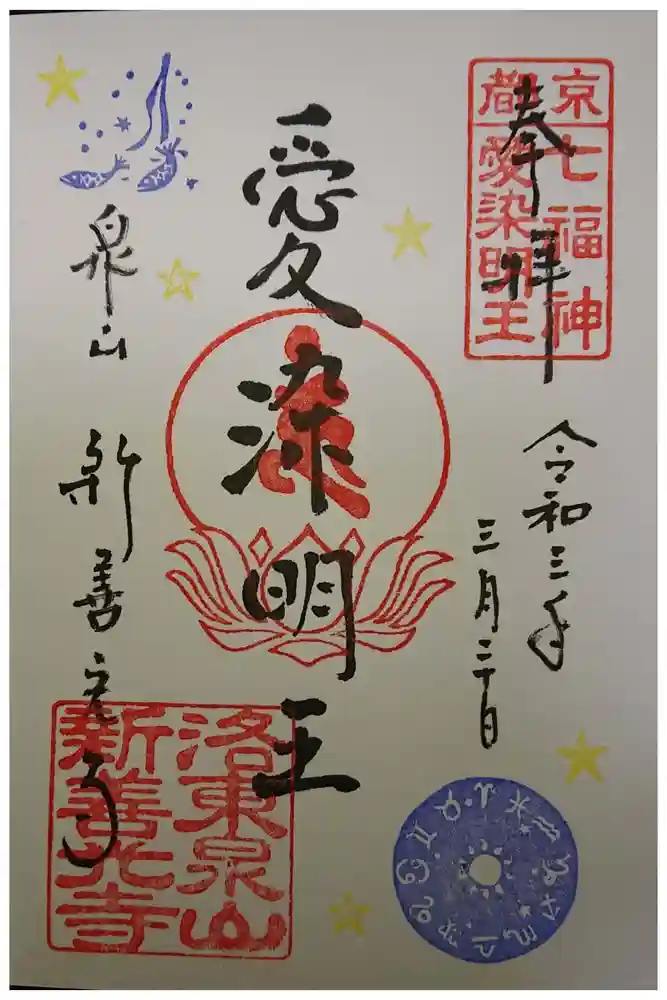 奉拝
京都
七福神
愛染明王
令和三年
三月二十日
愛染明王
泉山 新善光寺
洛東泉山
新善光寺
♈♓♒♑♐♏♎♍♌♋♊♉